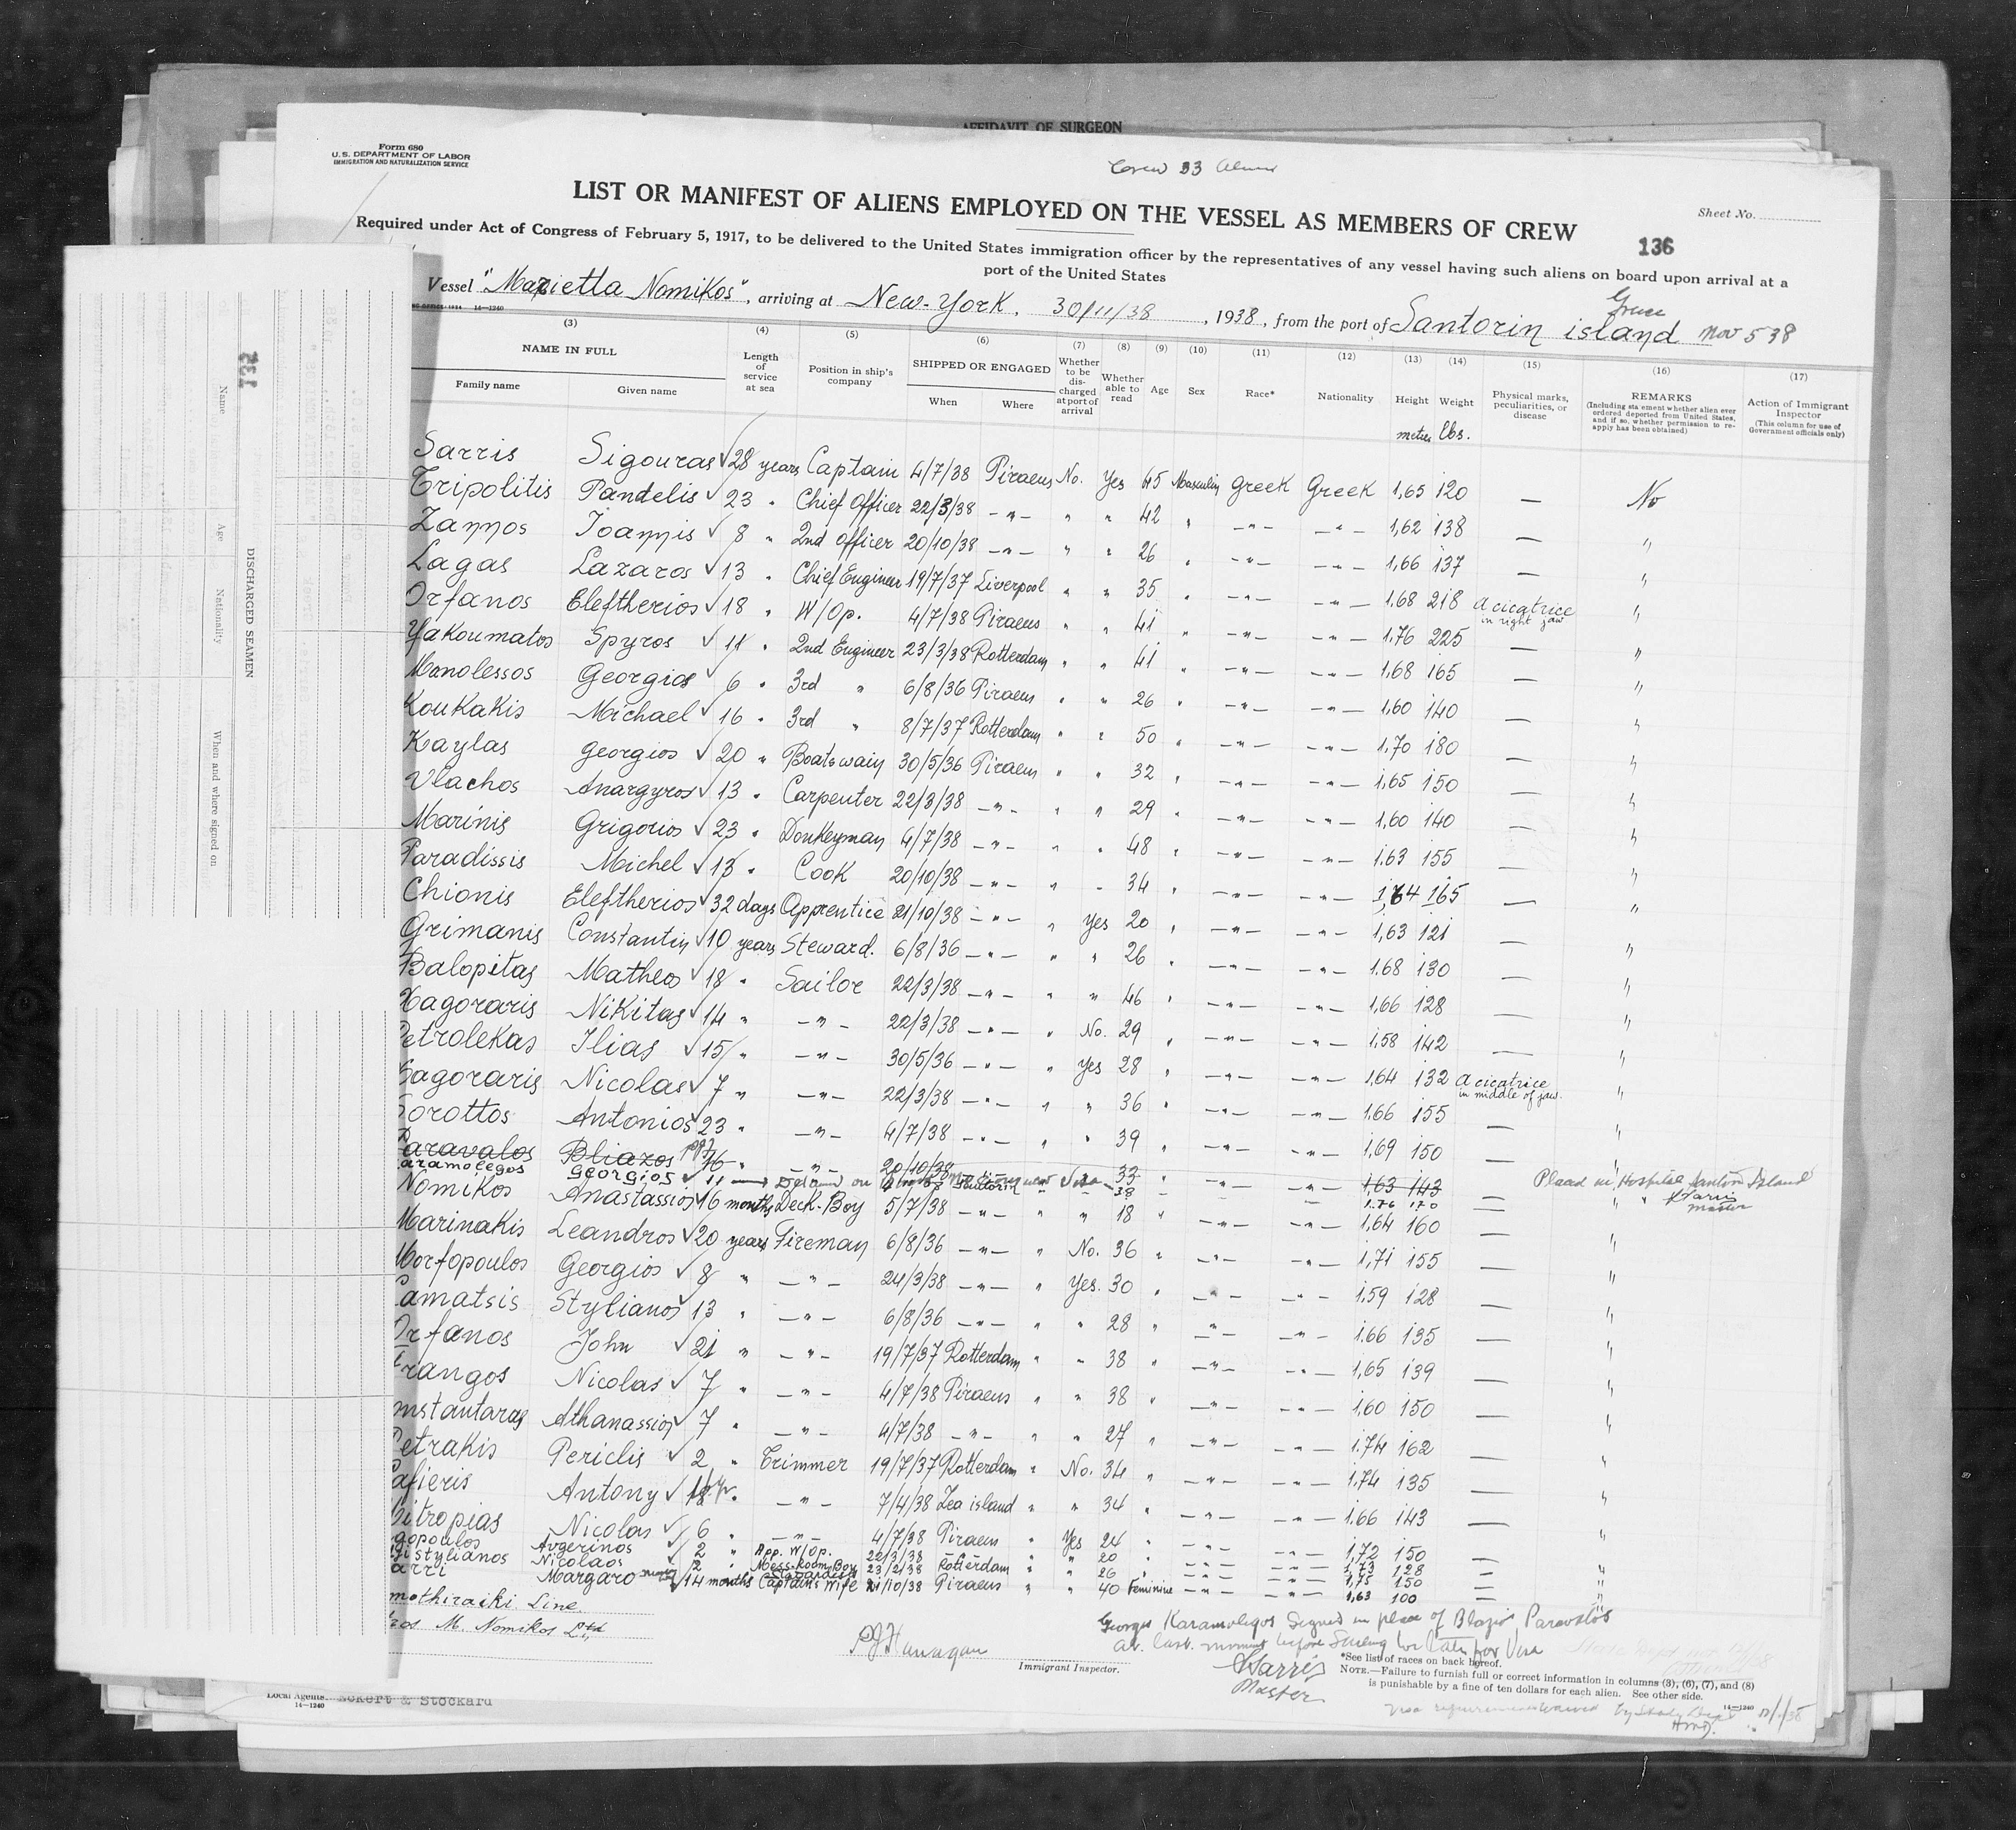 AFFIDAVIT OF SURGEON
Form 680
U.S. DEPARTMENT OF LABOR
IMMIGRATION AND NATURALIZATION SERVICE
Crew 33 Aliens
LIST OR MANIFEST OF ALIENS EMPLOYED ON THE VESSEL AS MEMBERS OF CREW
Sheet No.
136
Required under Act of Congress of February 5, 1917, to be delivered to the United States immigration officer by the representatives of any vessel having such aliens on board upon arrival at a
port of the United States
Vessel "Marietta Nomikos", arriving at New-York. 30/11/38, 1938, from the port of Santorin island Greece Nov 5 38
14—1240
(3) (4) (5) (6) (7) (8) (9) (10) (11) (12) (13) (14) (15) (16) (17)
NAME IN FULL
Family name Given name
Length of service at sea
Position in ship's company
SHIPPED OR ENGAGED
When Where
Whether to be discharged at port of arrival
Whether able to read
Age Sex Race* Nationality Height Weight
metres lbs.
Physical marks, peculiarities, or disease
REMARKS
(Including statement whether alien ever ordered deported from United States, and if so, whether permission to reapply has been obtained)
Action of Immigrant Inspector
(This column for use of Government officials only)
Sarris Sigouras 28 years Captain 4/7/38 Piraeus No. Yes 45 Masculin Greek Greek 1,65 120 — No
Tripolitis Pandelis 23 " Chief Officer 22/3/38 —"— " " 42 " —"— —"— 1,62 138 — "
Zannos Ioannis 8 " 2nd Officer 20/10/38 —"— " " 26 " —"— —"— 1,66 137 — "
Lagas Lazaros 13 " Chief Engineer 19/7/37 Liverpool " " 35 " —"— —"— 1.68 218 a cicatrice in right jaw "
Orfanos Eleftherios 18 " W/Op. 4/7/38 Piraeus " " 41 " —"— —"— 1.76 225 — "
Yakoumatos Spyros 11 " 2nd Engineer 23/3/38 Rotterdam " " 41 " —"— —"— 1,68 165 — "
Manolessos Georgios 6 " 3rd " 6/8/36 Piraeus " " 26 " —"— —"— 1,60 140 — "
Koukakis Michael 16 " 3rd " 8/7/37 Rotterdam " " 50 " —"— —"— 1,70 180 — "
Kaylas Georgios 20 " Boatswain 30/5/36 Piraeus " " 32 " —"— —"— 1,65 150 — "
Vlachos Anargyros 13 " Carpenter 22/3/38 —"— " " 29 " —"— —"— 1,60 140 — "
Marinis Grigorios 23 " Donkeyman 4/7/38 —"— " " 48 " —"— —"— 1.63 155 — "
Paradissis Michel 13 " Cook 20/10/38 —"— " " 34 " —"— —"— 1,64 165 — "
Chionis Eleftherios 32 days Apprentice 21/10/38 —"— " Yes 20 " —"— —"— 1,63 121 — "
Grimanis Constantin 10 years Steward. 6/8/36 —"— " " 26 " —"— —"— 1.68 130 — "
Balopitas Matheos 18 " Sailor 22/3/38 —"— " " 46 " —"— —"— 1,66 128 — "
Xagoraris Nikitas 14 " —"— 22/3/38 —"— " No. 29 " —"— —"— 1,58 142 — "
Petrolekas Ilias 15 " —"— 30/5/36 —"— " Yes 28 " —"— —"— 1,64 132 a cicatrice in middle of jaw. "
agoraris Nicolas 7 " —"— 22/3/38 —"— " " 36 " —"— —"— 1.66 155 — "
orottos Antonios 23 " —"— 4/7/38 —"— " " 39 " —"— —"— 1,69 150 — "
aravalos Bliazos 16 " —"— 20/10/38 33 " —"— —"— 1,63 143 Placed in Hospital Santorin Island
aramolegos Georgios 11 Santorin 38 1.76 170 — " " Sarris Master
Nomikos Anastassios 16 months Deck-Boy 5/7/38 —"— " " 18 " —"— —"— 1,64 160 — "
Marinakis Leandros 20 years Fireman 6/8/36 —"— " No. 36 " —"— —"— 1,71 155 — "
Morfopoulos Georgios 8 " —"— 24/3/38 —"— " Yes. 30 " —"— —"— 1.59 128 — "
amatsis Stylianos 13 " —"— 6/8/36 —"— " " 28 " —"— —"— 1.66 135 — "
Orfanos John 21 " —"— 19/7/37 Rotterdam " " 38 " —"— —"— 1,65 139 — "
rangos Nicolas 7 " —"— 4/7/38 Piraeus " " 38 " —"— —"— 1,60 150 — "
nstantaras Athanassios 7 " —"— 4/7/38 —"— " " 27 " —"— —"— 1.74 162 — "
Petrakis Periclis 2 " Trimmer 19/7/37 Rotterdam " No. 34 " —"— —"— 1.74 135 — "
afieris Antony " —"— 7/4/38 Zea island " " 34 " —"— —"— 1.66 143 — "
itropias Nicolas 6 " —"— 4/7/38 Piraeus " Yes 24 " —"— —"— 1,72 150 — "
gopoulos Avgerinos 2 " App. W/Op. 22/3/38 " " 20 " —"— —"— 1,73 128 — "
istylianos Nicolaos 2 " Mess-Room Boy 23/2/38 Rotterdam " " 26 " —"— —"— 1,75 150 — "
arri Margaro 14 months Captain's Wife 21/10/38 Piraeus " " 40 Feminine —"— —"— 1,63 100 — "
mothiraiki Line.
ros M. Nomikos Ltd
PJ Flanagan
Immigrant Inspector.
Georges Karamolegos Signed in place of Blazios Paravalos
at last moment before Sailing too late for Visa
Sarris
Master
*See list of races on back hereof.
NOTE.—Failure to furnish full or correct information in columns (3), (6), (7), and (8)
is punishable by a fine of ten dollars for each alien. See other side.
14—1240
Visa requirement waived by State Dept
Local Agents Eckert & Stockard
14—1240
DISCHARGED SEAMEN
Name
Age
Nationality
When and where signed on